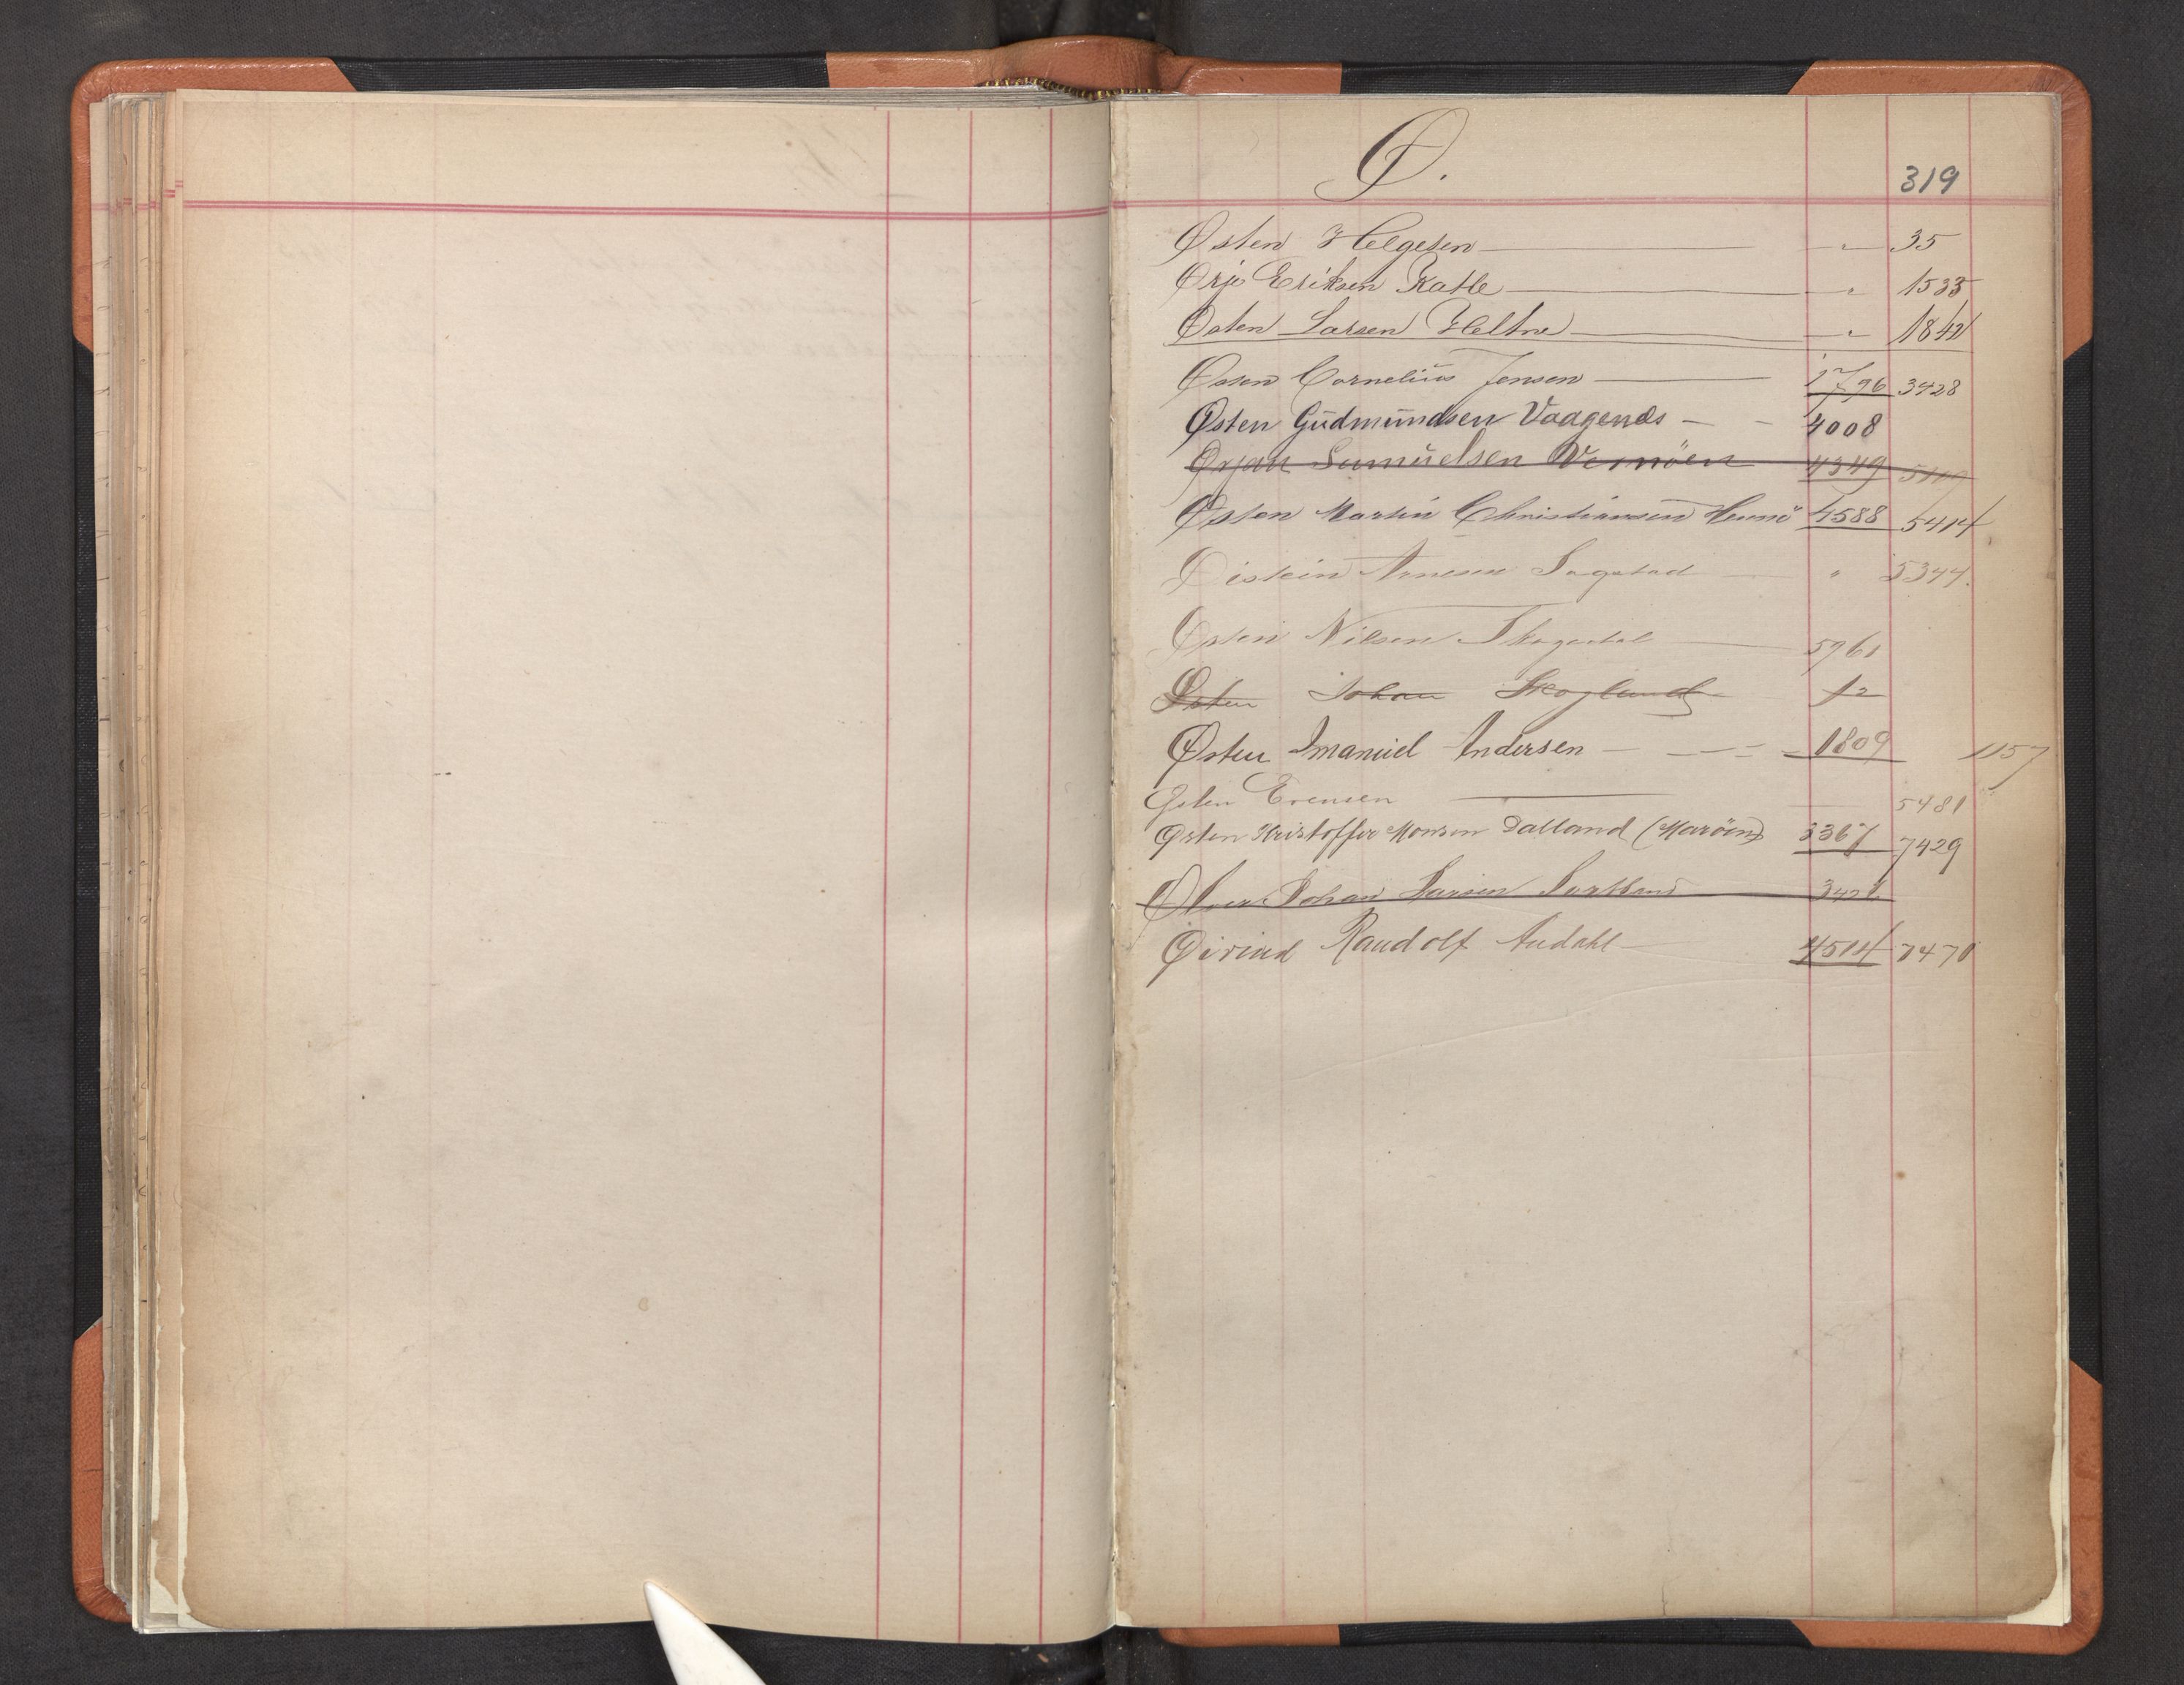 Ø.
319
Østen Helgesen — „ 35
Ørje Eriksen Katle — „ 1533
Østen Larsen Heltne — „ 1842
Østen Cornelius Jensen — 1796 3428
Østen Gudmundsen Vaagenæs — 4008
Ørjan Samuelsen Vernöen 4349
Østen Martin Christiansen 4588 5414
Øistein Arnesen Sagstad — „ 5344.
Østein Nilsen — 5961
Østen Johan Skogland 12
Østen Imanuel Andersen — 1809 1157
Østen Evensen — 5481
Østen Kristoffer Monsen Dalland (Maröen) 3367 7429
Johan Larsen 3421
Øivind Randolf Audahl — 4514 7470